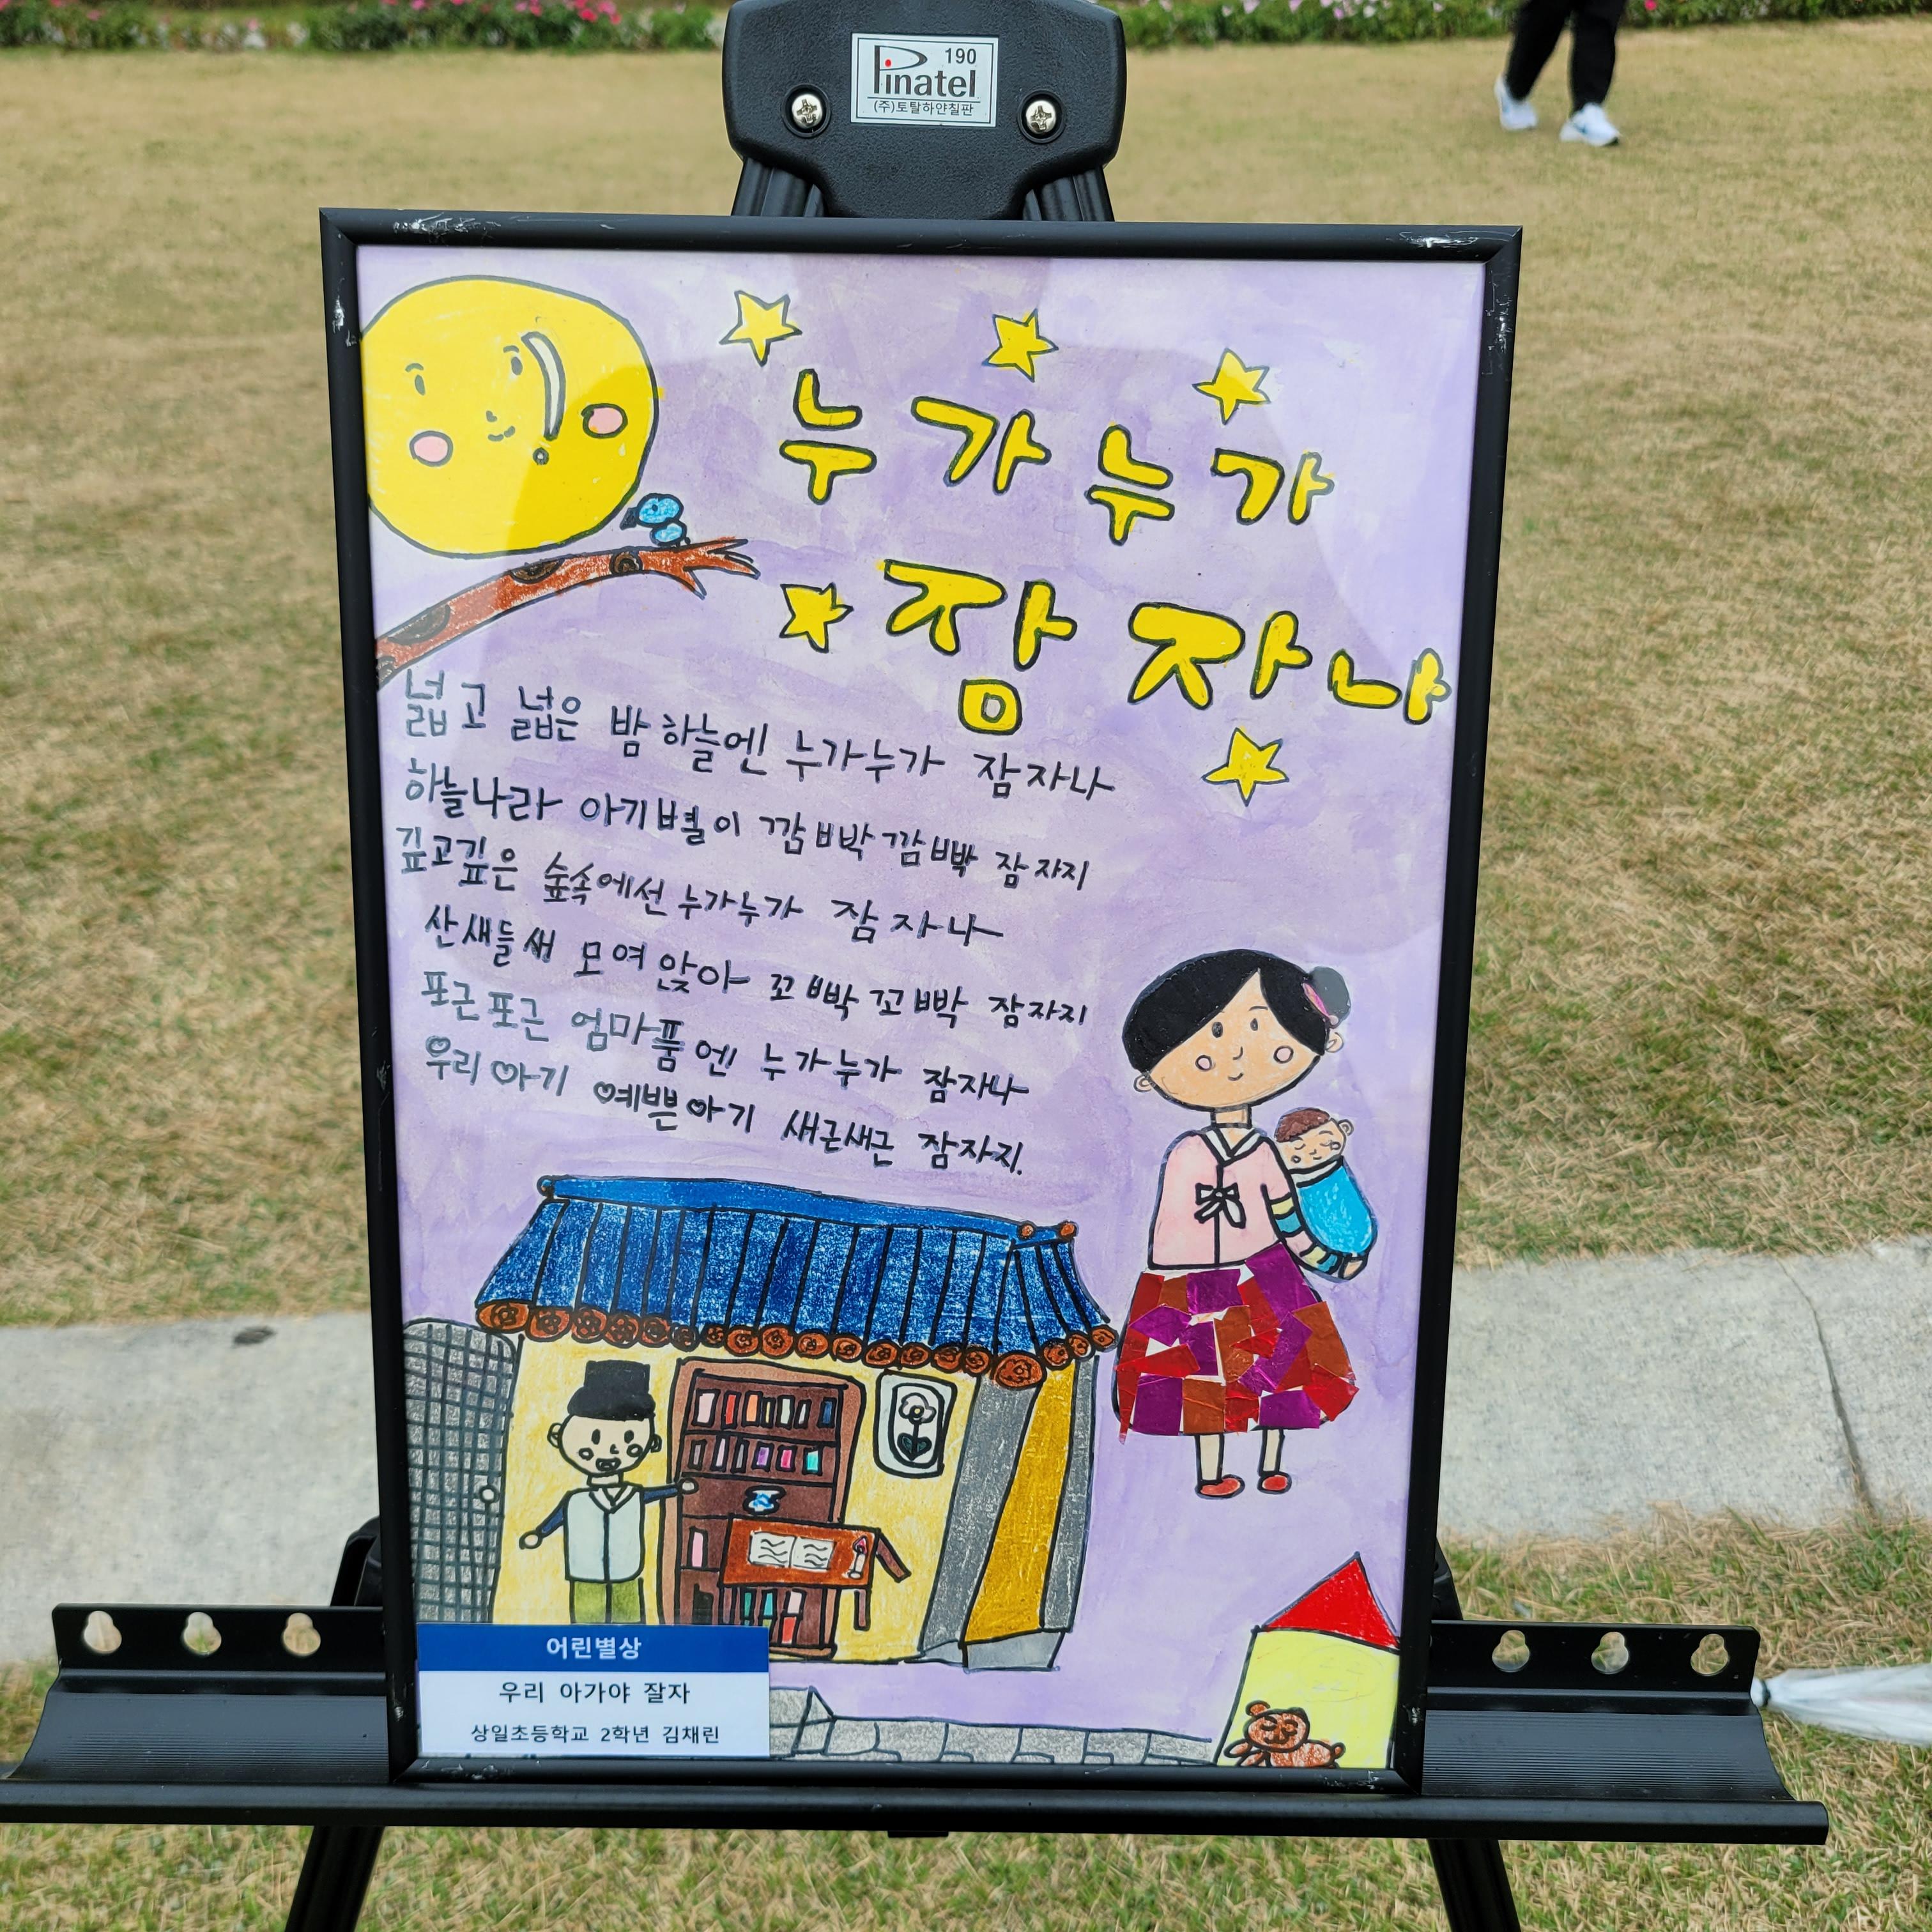 Pinatel 190
(주)토탈하얀칠판
누가누가
잠 자나
넓고 넓은 밤하늘엔 누가누가 잠자나
하늘나라 아기별이 깜빡깜빡 잠자지
깊고깊은 숲속에선 누가누가 잠자나
산새들새 모여앉아 꼬빡꼬빡 잠자지
포근포근 엄마품엔 누가누가 잠자나
우리아기 예쁜아기 새근새근 잠자지.
어린별상
우리 아가야 잘자
상일초등학교 2학년 김채린